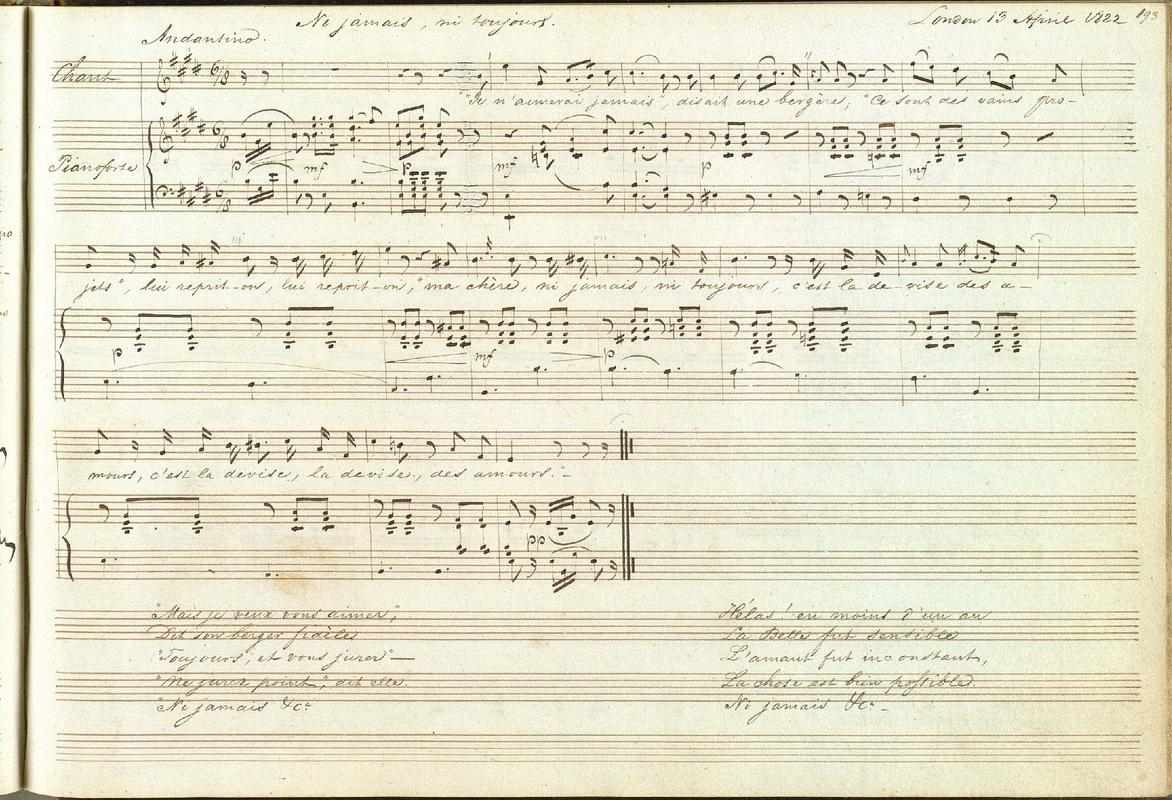 Ni jamais, ni toujours.
London 13 April 1822
193
Andantino.
Chant
"Je n'aimerai jamais", disait une bergère; "Ce sont des vains pro-
Pianoforte
p mf p mf p mf
jets", lui reprit-on, lui reprit-on; "ma chère, ni jamais, ni toujours, c'est la de-vise des a-
p mf p
mours, c'est la devise, la devise, des amours."-
pp
"Mais je veux vous aimer",
Dit son berger fidèle
"Toujours, et vous jurer"—
"Ne jurez point", dit elle.
"Ni jamais &c:
Hélas! en moins d'un an
La Belle fut sensible
L'amant fut inconstant,
La chose est bien possible.
Ni jamais &c: -